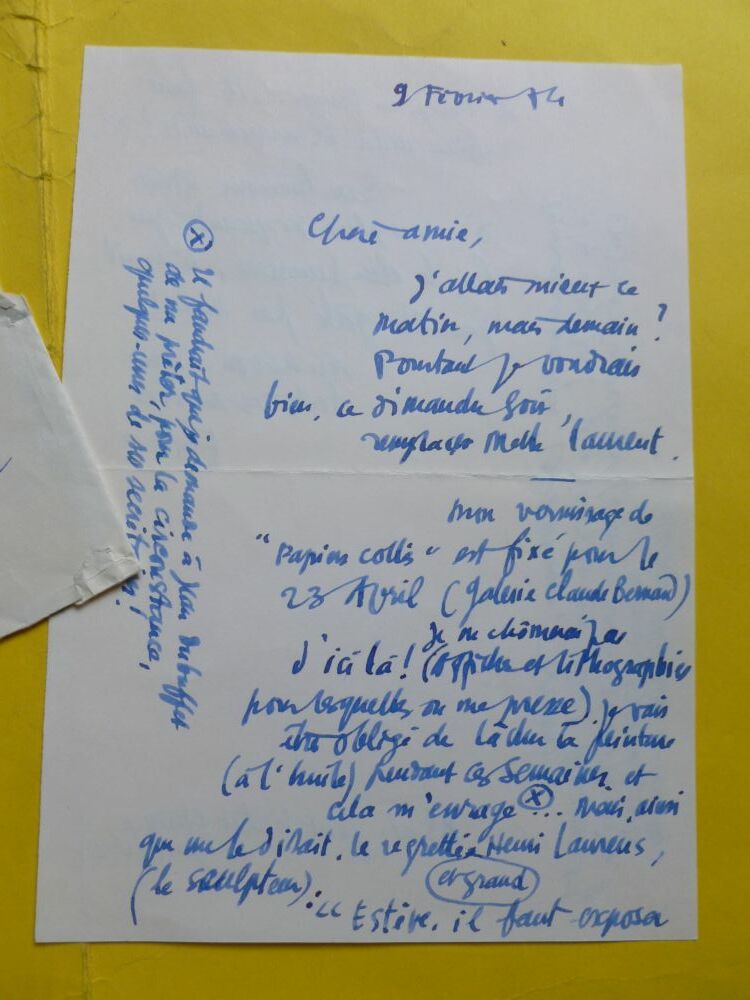 9 Février 74
Chère amie,
j'allais mieux ce
matin, mais demain ?
Pourtant je voudrais
bien, ce dimanche soir,
remplacer Melle Laurent.
mon vernissage de
"Papiers collés" est fixé pour le
23 Avril (Galerie Claude Bernard)
Je ne chômerai pas
d'ici là ! (Affiche et lithographies
pour lesquelles on me presse) je vais
être obligé de lâcher la peinture
(à l'huile) pendant ces semaines, et
cela m'enrage ⓧ... mais, ainsi
que me le disait, le regretté Henri Laurens,
et grand
(le sculpteur) :
"Estève, il faut exposer
ⓧ Il faudrait que je demande à Jean Dubuffet
de me prêter, pour la circonstance,
quelques-uns de ses secrétaires !